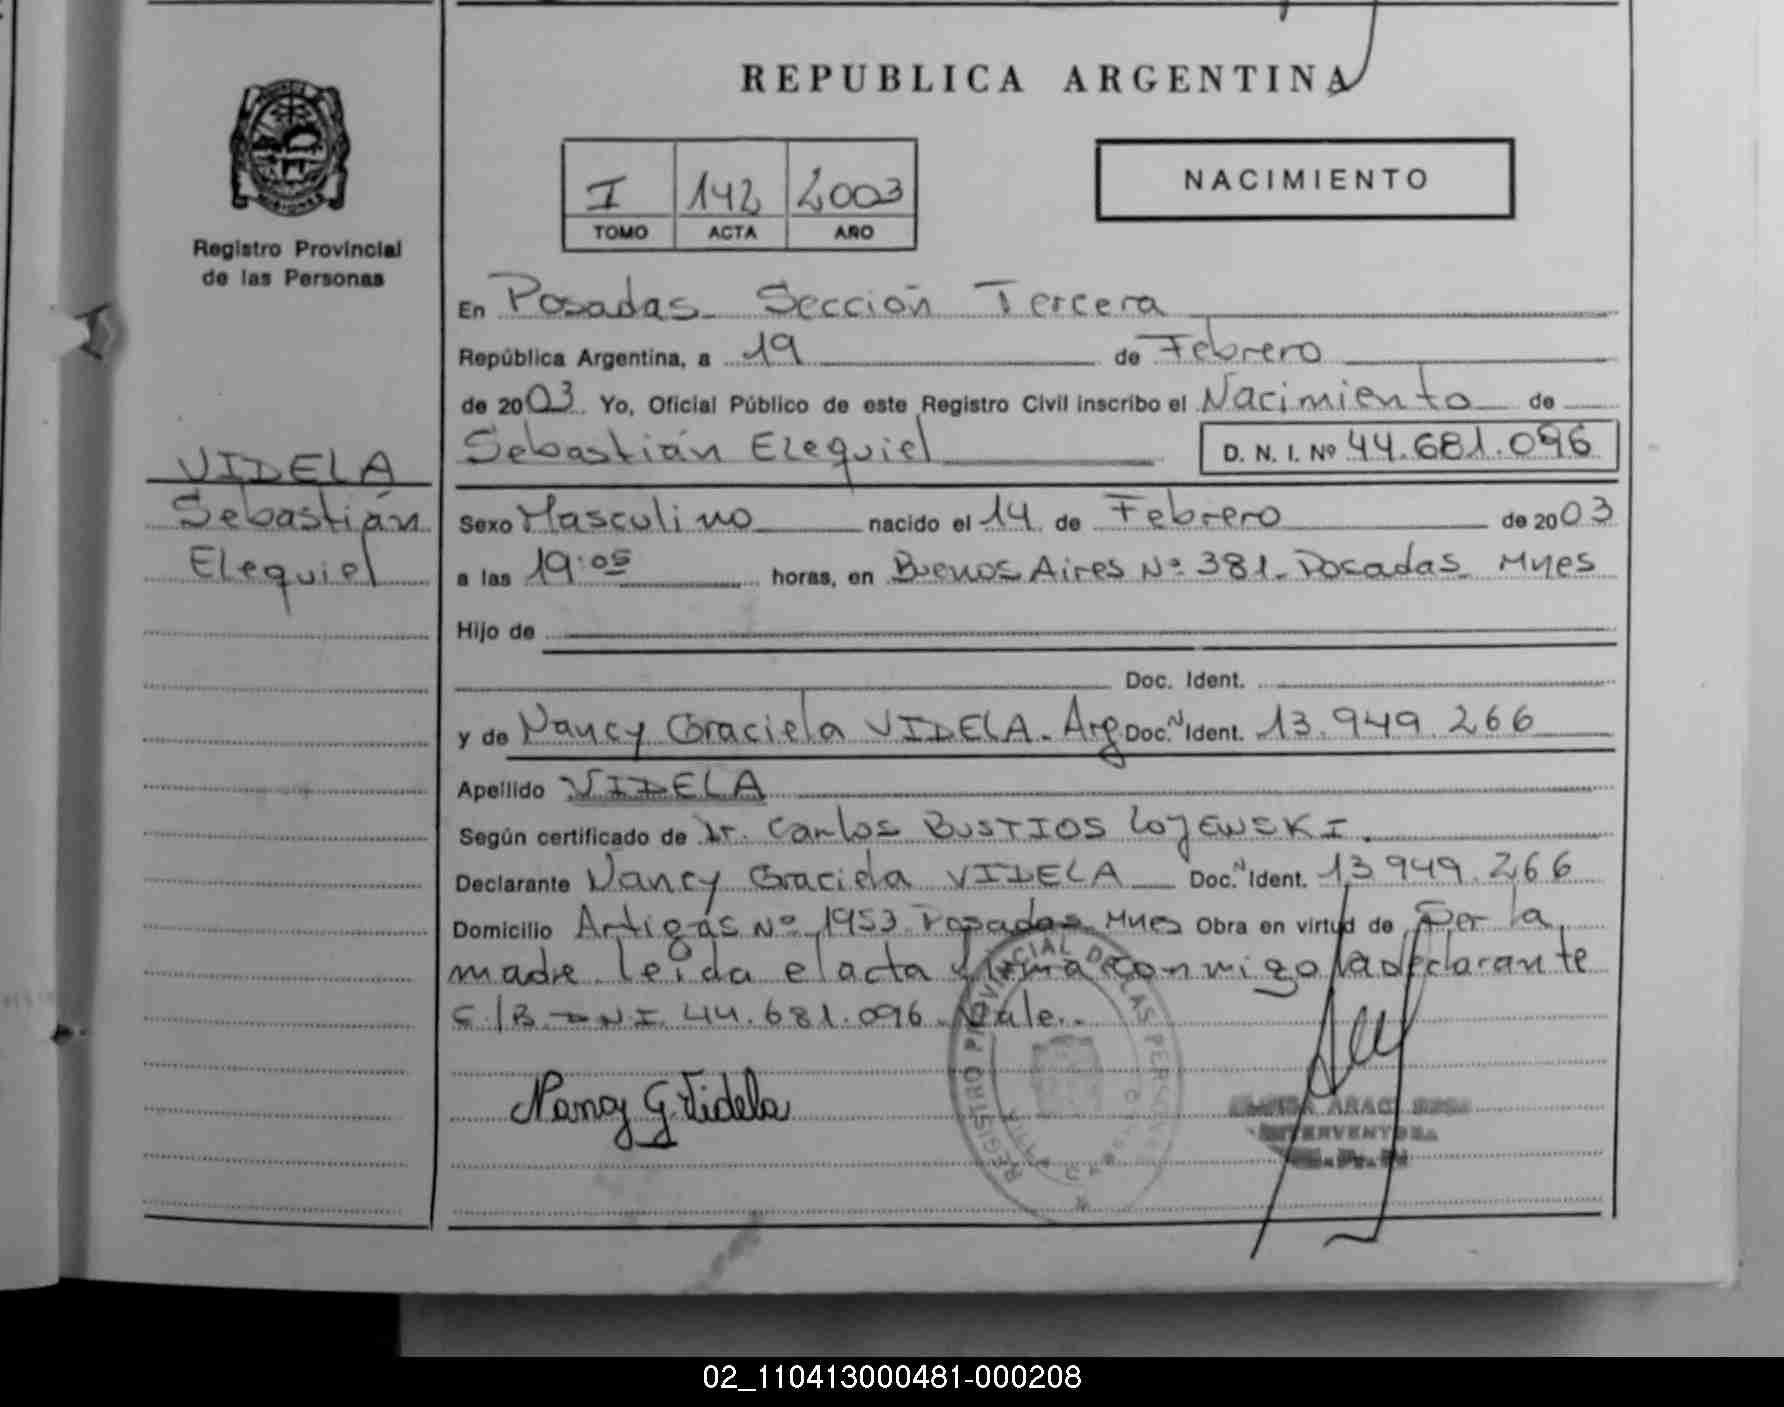 REPUBLICA ARGENTINA
NACIMIENTO
I 142 2003
TOMO ACTA AÑO
Registro Provincial
de las Personas
MISIONES
En Posadas Sección Tercera
República Argentina, a 19 de Febrero
de 2003 Yo, Oficial Público de este Registro Civil inscribo el Nacimiento de
Sebastián Ezequiel D. N. I. Nº 44.681.096
VIDELA
Sebastián
Ezequiel
Sexo Masculino nacido el 14 de Febrero de 2003
a las 19:05 horas, en Buenos Aires Nº 381 - Posadas Mnes
Hijo de
Doc. Ident.
y de Nancy Graciela VIDELA - Arg Doc. N Ident. 13.949.266
Apellido VIDELA
Según certificado de Dr. Carlos BUSTIOS LOJEWSKI.
Declarante Nancy Graciela VIDELA Doc. N Ident. 13.949.266
Domicilio Artigas Nº 1953 Posadas Mnes Obra en virtud de Ser la
madre leída el acta firma conmigo la declarante
S/B DNI 44.681.096 Vale..
Nancy G. Videla
REGISTRO PROVINCIAL DE LAS PERSONAS
ARACI
INTERVENTORA
02_110413000481-000208